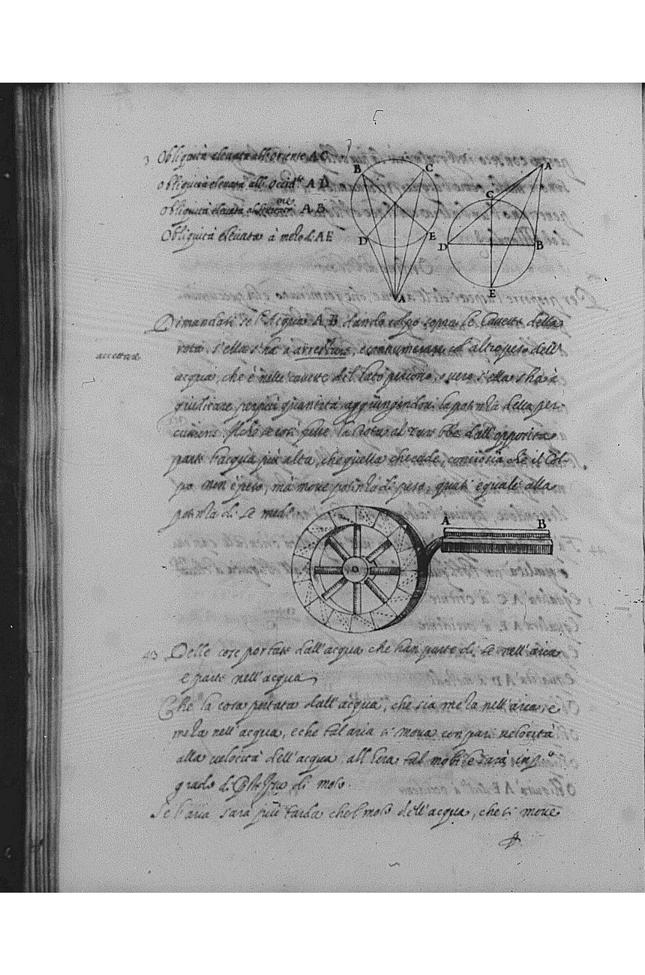 3 Obliquità elevata all'oriente A C
Obliquità elevata all' Ocidte A D
Obliquità elevata A B
Obliquità elevata à mezodi A E
B C
D E
A
A
C
D B
E
Dimandasi se l'Acqua A B dando colpo sopra le Cavette della
rota s'ella s'ha à arrestare, e connumerare col altro peso dell'
accettare
acqua, che è nelle cavette del lato percosso, overo s'ella s'ha à
giudicare per più quantità aggiungendovi la potenza della per
cussione. se così fusse la Rota alzarebbe dall'opposita
parte l'acqua più alta, che quella che cade, conciosia che il Col
po non è peso, mà move potenza di peso, quasi eguale alla
potenza di se med
A B
43 Delle cose portate dall'acqua che han parte di se nell'aria
e parte nell'acqua
Che la cosa portata dall'acqua, che sia meza nell'aria, e
meza nell'acqua, e che tal aria si mova con pari velocità
alla velocità dell'acqua all'hora tal mobile sarà in pº
grado di di moto.
Se l'aria sarà più tarda che'l moto dell'acqua, che si move